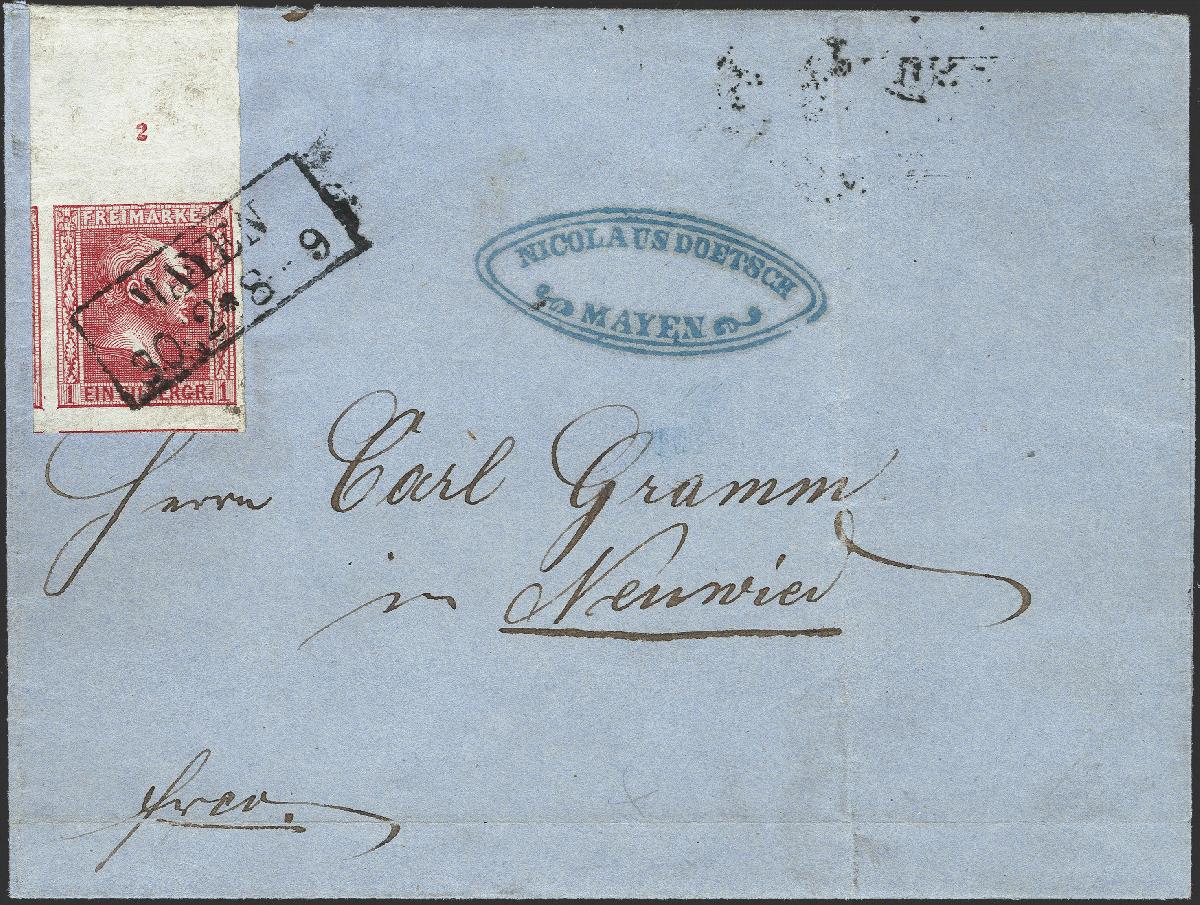 2
FREIMARKE
1 EIN SILBERGR. 1
MAYEN
30 2* 8-9
NICOLAUS DOETSCH
MAYEN
Herrn Carl Gramm
in Neuwied
frco.